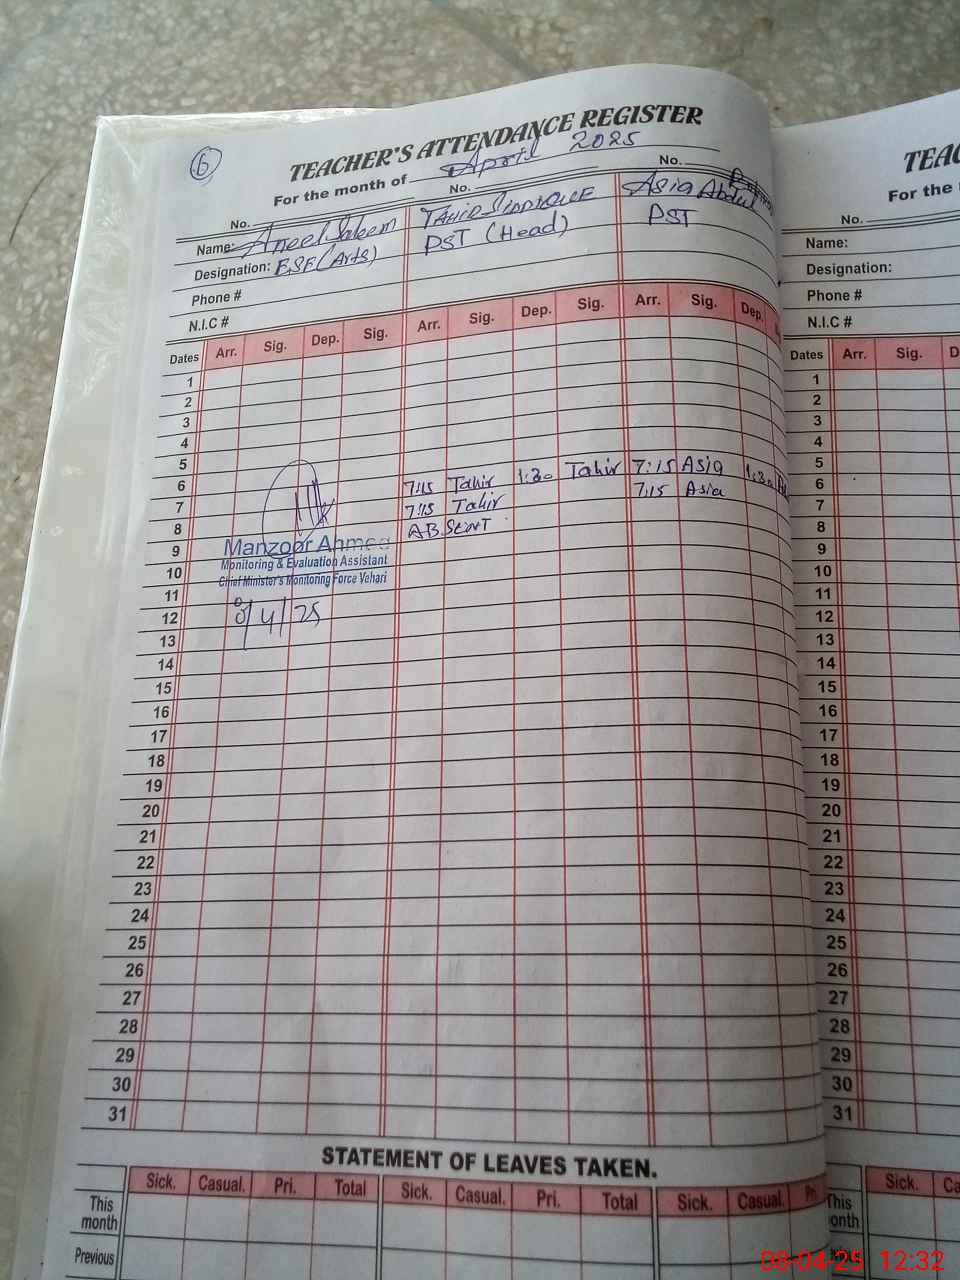 6
TEACHER'S ATTENDANCE REGISTER
For the month of April 2025
No. No. No.
Name: Aneel Saleem TAHIR SIDDIQUE Asia Abdul
Designation: ESE (Arts) PST (Head) PST
Phone #
N.I.C #
Dates Arr. Sig. Dep. Sig. Arr. Sig. Dep. Sig. Arr. Sig. Dep.
1
2
3
4
5
6 7:15 Tahir 1:30 Tahir 7:15 Asia 1:30
7 7:15 Tahir 7:15 Asia
8 ABSENT
9
Manzoor Ahmed
Monitoring & Evaluation Assistant
10
Chief Minister's Monitoring Force Vehari
11
12 8/4/25
13
14
15
16
17
18
19
20
21
22
23
24
25
26
27
28
29
30
31
STATEMENT OF LEAVES TAKEN.
Sick. Casual. Pri. Total Sick. Casual. Pri. Total Sick. Casual. Pri
This month
Previous
TEAC
For the
No.
Name:
Designation:
Phone #
N.I.C #
Dates Arr. Sig. D
1
2
3
4
5
6
7
8
9
10
11
12
13
14
15
16
17
18
19
20
21
22
23
24
25
26
27
28
29
30
31
Sick. Ca
This
onth
08-04-25 12:32